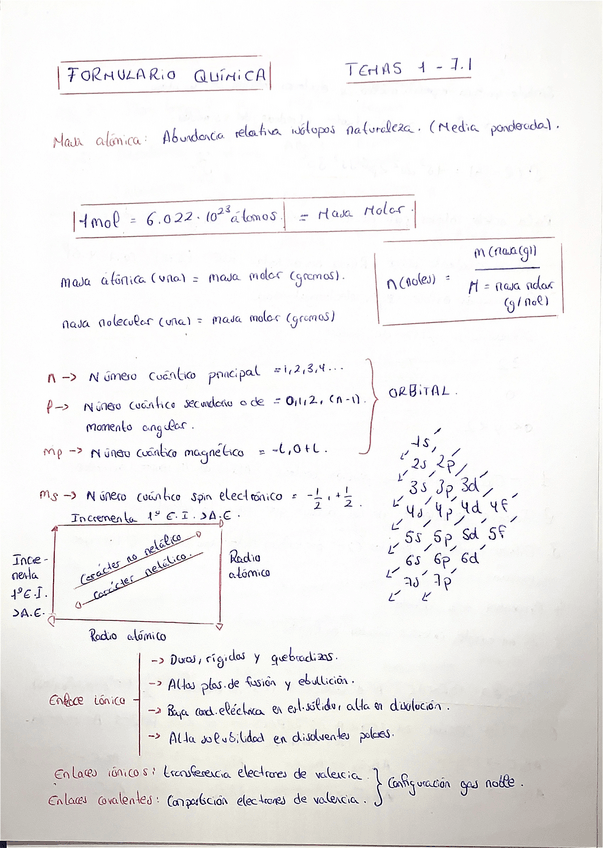 FORMULARIO QUÍMICA
TEMAS 1 - 7.1
Masa atómica: Abundancia relativa isótopos naturaleza. (Media ponderada).
1mol = 6.022·10²³ átomos = Masa Molar
masa atómica (uma) = masa molar (gramos).
masa molecular (uma) = masa molar (gramos)
n(moles) = m(masa(g)) / M = masa molar (g/mol)
n -> Número cuántico principal = 1,2,3,4...
l -> Número cuántico secundario o de = 0,1,2, (n-1).
momento angular.
ml -> Número cuántico magnético = -l, 0 +l.
ORBITAL.
ms -> Número cuántico spin electrónico = -1/2, +1/2.
1s
2s 2p
3s 3p 3d
4s 4p 4d 4f
5s 5p 5d 5f
6s 6p 6d
7s 7p
Incrementa 1º E.I. >A.E.
Incre-
menta
1º E.I.
>A.E.
Carácter no metálico
Carácter metálico.
Radio
atómico
Radio atómico
Enlace iónico
-> Duros, rígidos y quebradizos.
-> Altos ptos. de fusión y ebullición.
-> Baja cond. eléctrica en est. sólido, alta en disolución.
-> Alta solubilidad en disolventes polares.
Enlaces iónicos: transferencia electrones de valencia.
Enlaces covalentes: Compartición electrones de valencia.
Configuración gas noble.